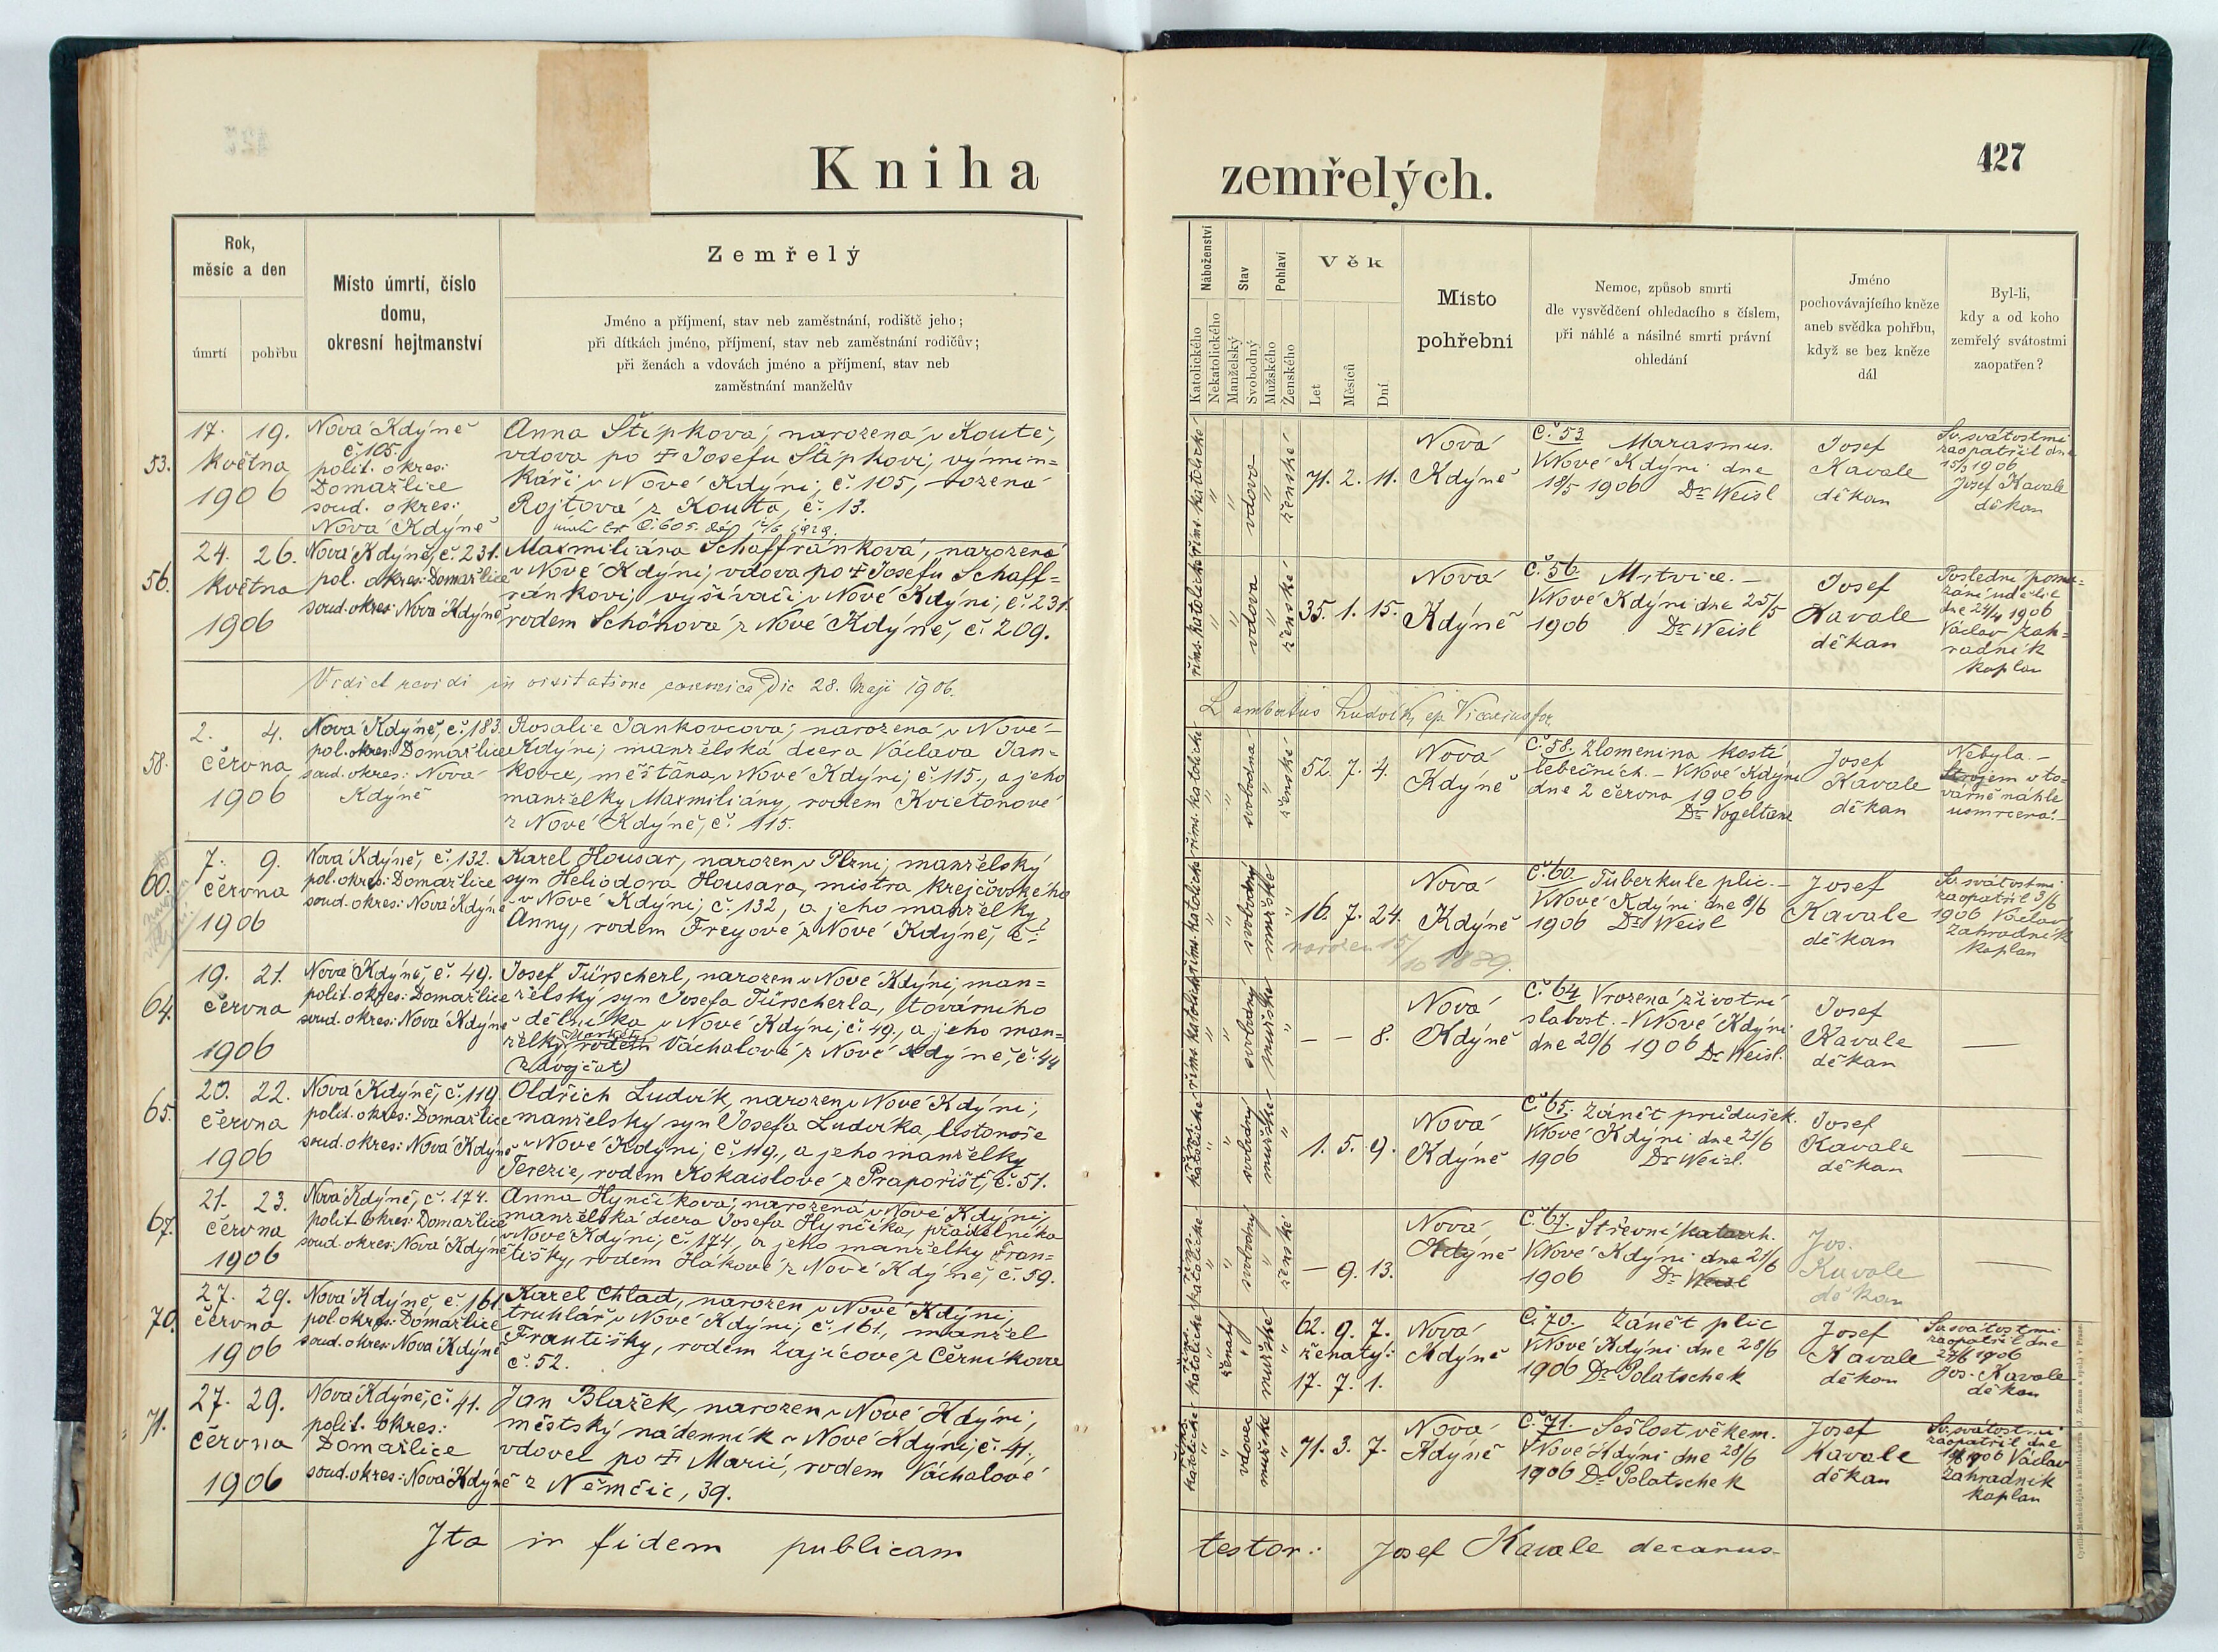 427
Kniha
zemřelých.
Rok,
měsíc a den
úmrtí
pohřbu
Místo úmrtí, číslo
domu,
okresní hejtmanství
Zemřelý
Jméno a příjmení, stav neb zaměstnání, rodiště jeho;
při dítkách jméno, příjmení, stav neb zaměstnání rodičův;
při ženách a vdovách jméno a příjmení, stav neb
zaměstnání manželův
Náboženství
Katolického
Nekatolického
Stav
Manželský
Svobodný
Pohlaví
Mužského
Ženského
Věk
Let
Měsíců
Dní
Místo
pohřební
Nemoc, způsob smrti
dle vysvědčení ohledacího s číslem,
při náhlé a násilné smrti právní
ohledání
Jméno
pochovávajícího kněze
aneb svědka pohřbu,
když se bez kněze
dál
Byl-li,
kdy a od koho
zemřelý svátostmi
zaopatřen?
53.
17. 19.
května
1906
Nová Kdýně
č. 105.
polit. okres:
Domažlice
soud. okres:
Nová Kdýně
Anna Štípková, narozená v Koutě,
vdova po † Josefu Štípkovi, výmin=
káři v Nové Kdýni, č. 105, rozená
Rojtová z Kouta, č. 13.
řím. katolické
"
"
vdova
"
ženské
71. 2. 11.
Nová
Kdýně
Č. 53 Marasmus.
V Nové Kdýni dne
18/5 1906 Dr Weisl
Josef
Kavale
děkan
Sv. svátostmi
zaopatřil dne
15/5 1906
Josef Kavale
děkan
56.
24. 26.
května
1906
Nová Kdýně, č. 231.
pol. okres: Domažlice
soud. okres: Nová Kdýně
Maxmiliána Schaffránková, narozená
v Nové Kdýni, vdova po † Josefu Schaff=
ránkovi, vyšívači v Nové Kdýni, č. 231.
rodem Schönová z Nové Kdýně, č. 209.
řím. katolické
"
"
vdova
"
ženské
35. 1. 15.
Nová
Kdýně
Č. 56 Mrtvice.-
V Nové Kdýni dne 25/5
1906 Dr Weisl
Josef
Kavale
děkan
Poslední poma=
zání udělil
dne 24/4 1906
Václav Zah=
radník
kaplan
Vidi et revidi in visitatione canonica Die 28. Maji 1906.
Lambertus Ludvík, ep. Vicarius for.
58.
2. 4.
června
1906
Nová Kdýně, č. 183.
pol. okres: Domažlice
soud. okres: Nová
Kdýně
Rosalie Jankovcová, narozená v Nové
Kdýni, manželská dcera Václava Jan=
kovce, měšťana v Nové Kdýni, č. 115., a jeho
manželky Maxmiliány, rodem Kvietonové
z Nové Kdýně, č. 115.
řím. katolické
"
"
svobodná
"
ženské
52. 7. 4.
Nová
Kdýně
Č. 58. Zlomenina kostí
lebečních.- V Nové Kdýni
dne 2 června 1906
Dr Vogeltanz
Josef
Kavale
děkan
Nebyla.-
Strojem v to=
várně náhle
usmrcena.-
60.
7. 9.
června
1906
Nová Kdýně, č. 132.
pol. okres: Domažlice
soud. okres: Nová Kdýně
Karel Housar, narozen v Plzni, manželský
syn Heliodora Housara, mistra krejčovského
v Nové Kdýni, č. 132, a jeho manželky
Anny, rodem Freyové z Nové Kdýně, č.
řím. katolické
"
"
svobodný
mužské
"
16. 7. 24.
narozen 15/10 1889.
Nová
Kdýně
Č. 60. Tuberkule plic.-
V Nové Kdýni dne 8/6
1906 Dr Weisl
Josef
Kavale
děkan
Sv. svátostmi
zaopatřil 3/6
1906 Václav
Zahradník
kaplan
64.
19. 21.
června
1906
Nová Kdýně, č. 49.
polit. okres: Domažlice
soud. okres: Nová Kdýně
Josef Türscherl, narozen v Nové Kdýni, man=
želský syn Josefa Türscherla, továrního
dělníka v Nové Kdýni, č. 49., a jeho man=
želky rodem Váchalové z Nové Kdýně, č. 44
(z dvojčat)
řím. katolické
"
"
svobodný
mužské
"
— — 8.
Nová
Kdýně
Č. 64 Vrozená životní
slabost.- V Nové Kdýni
dne 20/6 1906 Dr Weisl.
Josef
Kavale
děkan
—
65.
20. 22.
června
1906
Nová Kdýně, č. 119.
polit. okres: Domažlice
soud. okres: Nová Kdýně
Oldřich Ludvík, narozen v Nové Kdýni,
manželský syn Josefa Ludvíka, listonoše
v Nové Kdýni, č. 119., a jeho manželky
Terezie, rodem Kokaislové z Prapořišť, č. 51.
říms. katolické
"
"
svobodný
mužské
"
1. 5. 9.
Nová
Kdýně
Č. 65. Zánět průdušek.
V Nové Kdýni dne 21/6
1906 Dr Weisl.
Josef
Kavale
děkan
—
67.
21. 23.
června
1906
Nová Kdýně, č. 174.
polit. okres: Domažlice
soud. okres: Nová Kdýně
Anna Hynčíková, narozená v Nové Kdýni,
manželská dcera Josefa Hynčíka, přádelníka
v Nové Kdýni, č. 174, a jeho manželky Fran=
tišky, rodem Hákové z Nové Kdýně, č. 59.
říms. katolické
"
"
svobodný
"
ženské
— 9. 13.
Nová
Kdýně
Č. 67. Střevní katarrh.
V Nové Kdýni dne 21/6
1906 Dr Weisl
Jos.
Kavale
děkan
—
70.
27. 29.
června
1906
Nová Kdýně, č. 161.
pol. okres: Domažlice
soud. okres: Nová Kdýně
Karel Chlad, narozen v Nové Kdýni,
truhlář v Nové Kdýni, č. 161., manžel
Františky, rodem Zajícové z Černíkova
č. 52.
říms. katolické
"
ženatý
"
mužské
"
62. 9. 7.
ženatý:
17. 7. 1.
Nová
Kdýně
Č. 70. Zánět plic
V Nové Kdýni dne 28/6
1906 Dr Polatschek
Josef
Kavale
děkan
Sv. svátostmi
zaopatřil dne
27/6 1906
Jos. Kavale
děkan
71.
27. 29.
června
1906
Nová Kdýně, č. 41.
polit. okres:
Domažlice
soud. okres: Nová Kdýně
Jan Blažek, narozen v Nové Kdýni,
městský nádenník v Nové Kdýni, č. 41,
vdovec po † Marii, rodem Váchalové
z Němčic, 39.
říms. katolické
"
"
vdovec
mužské
71. 3. 7.
Nová
Kdýně
Č. 71. Sešlost věkem.
V Nové Kdýni dne 28/6
1906 Dr Polatschek
Josef
Kavale
děkan
Sv. svátostmi
zaopatřil dne
1906 Václav
Zahradník
kaplan
Ita in fidem publicam
testor: Josef Kavale decanus